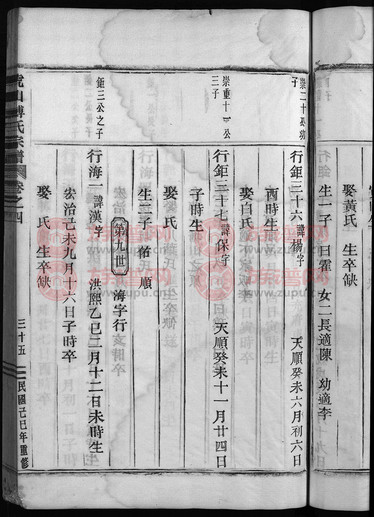 娶黃氏 生卒缺
生一子曰霍 女二長適陳 幼適李
子
行鉅三十六諱楊字 天順癸未六月初六日
酉時生
娶白氏
崇重十一公
三子
行鉅三十七諱保字 天順癸未十一月廿四日
子時生
娶氏 生卒缺
生二子 佑 順
第九世 海字行
鉅三公之子
行海一諱漢字 洪熙乙巳二月十二日未時生
宏治己未九月十六日子時卒
娶氏 生卒缺
虎山傅氏宗譜 卷之四 三十五 民國己巳年重修
族譜網
www.zupu.cn